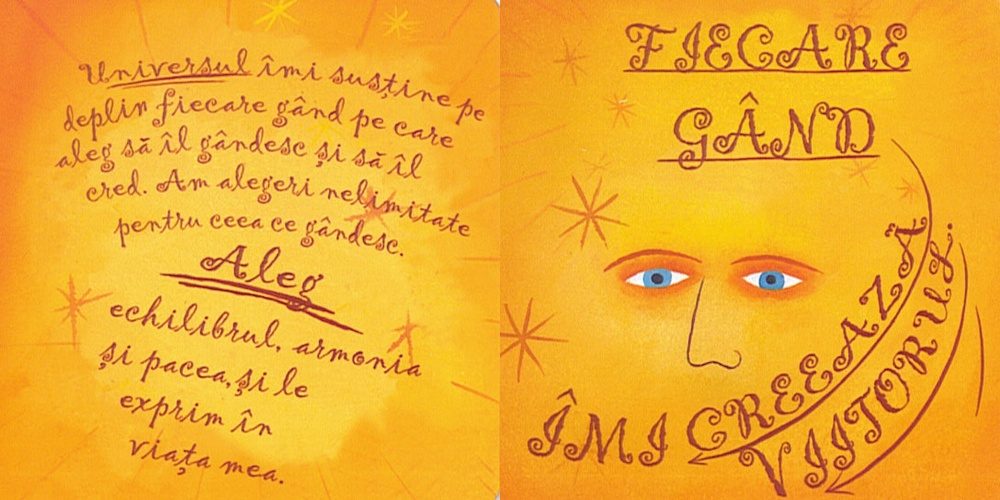 Universul îmi susține pe
deplin fiecare gând pe care
aleg să îl gândesc și să îl
cred. Am alegeri nelimitate
pentru ceea ce gândesc.
Aleg
echilibrul, armonia
și pacea, și le
exprim în
viața mea.
FIECARE
GÂND
ÎMI CREEAZĂ
VIITORUL.